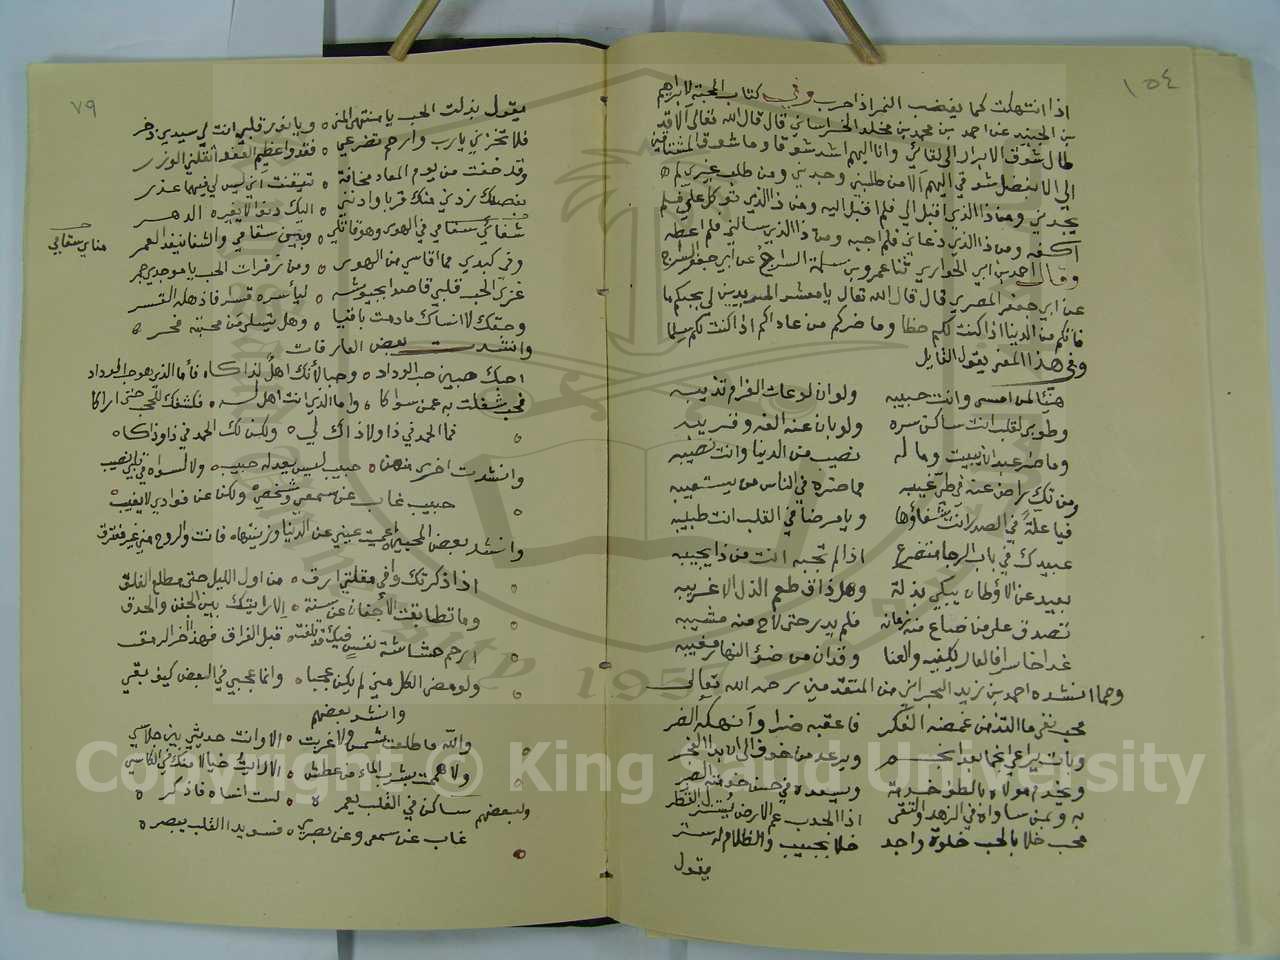 ١٥٤
اذا انتهكت كما يغضب النمر اذا حرب وفي كتاب المحبة لابراهيم
بن الجنيد عن احمد بن محمد بن مخلد الخراساني قال قال الله تعالى الا قد
طال شوق الابرار الى لقائي وانا اليهم اشد شوقا وما شوق المشتاقين
الي الا بفضل شوقي اليهم الا من طلبني وجدني ومن طلب غيري لم
يجدني ومن ذا الذي اقبل الي فلم اقبل اليه ومن ذا الذي توكل علي فلم
اكفه ومن ذا الذي دعاني فلم اجبه ومن ذا الذي سالني فلم اعطه
وقال احمد بن ابي الحواري ثنا عمرو بن سلمة السراج عن ابي جعفر
عن ابي جعفر المصري قال قال الله تعالى يا معشر المريدين لي يحبكم ما
فاتكم من الدنيا اذا كنت لكم حظا وما ضركم من عاداكم اذا كنت لكم سلما
وفي هذا المعنى يقول القايل
هنيئا لمن امسى وانت حبيبه ولو ان لوعات الغرام تذيبه
وطوبى لقلب انت ساكن سره ولو بان عنه الفه وقريبه
وما ضر عبد الا يبيت وما له نصيب من الدنيا وانت نصيبه
ومن تك راض عنه في طي غيبه فما ضره في الناس من يستعيبه
فيا علة في الصدر انت شفاؤها ويا مرضا في القلب انت طبيبه
عبيدك في باب الرجا متضرع اذا لم تجبه انت من ذا يجيبه
بعيد عن الاوطان يبكي بذلة وهل ذاق طعم الذل الا غريبه
تصدق على من ضاع منه زمانه فلم يدر حتى لاح منه مشيبه
غدا خاسرا فالعار يكفيه والعنا وقد ان من ضوء النهار مغيبه
ومما انشده احمد بن زيد البحراني من المتقدمين رحمه الله تعالى
محب نفى ما التذ من غمضه الفكر فاعقبه ضرا وانهكه الضر
وبات يراعي نجما بعد انجم ويرعد من خوف الى ان بدا الفجر
ويخدم مولاه بالطف خدمة ويسعده في حسن خدمته الصبر
به وبمن ساواه في الزهد والتقى اذا اجدب عم الارض يستنزل القطر
محب خلا بالحب خلوة واجد خلا بحبيب والظلام له ستر
يقول
٧٩
يقول بذلت الحب يا منتهى المنى ويا نور قلبي انت لي سيدي ذخر
فلا تخزني يا رب وارحم تضرعي فقد واعظيم العفو اثقلني الوزر
وقد خفت من يوم المعاد مخافة تيقنت اني ليس لي فيهما عذر
بفضلك زدني منك قربا وادنني اليك دنوا لا يغيره الدهر
شفائي سقامي في الهوى وهو قاتلي وبين سقامي والشفا نيفد العمر
وفي كبدي مما اقاسي من الهوى ومن زفرات الحب يا موجدي جمر
غزى الحب قلبي قاصدا بجيوشه لياسره قسرا فاذهله القسر
وحقك لا انساك ما دمت باقيا وهل يتسلى من محبته فخر
وانشدت بعض العارفات
احبك حبين حب الوداد وحبا لانك اهل لذاكا فاما الذي هو حب الوداد
فحبي شغلت به عمن سواكا واما الذي انت اهل له فكشفك للحجب حتى اراكا
فما الحمد في ذا ولا ذاك لي ولكن لك الحمد في ذا وذاكا
وانشدت اخرى منهن حبيب ليس يعدله حبيب ولا لسواه في قلبي نصيب
حبيب غاب عن سمعي وشخصي ولكن عن فوادي لا يغيب
وانشد بعض المحبين اعميت عيني عن الدنيا وزينتها فانت والروح مني غير مفترق
اذا ذكرتك وافى مقلتي ارق من اول الليل حتى مطلع الفلق
وما تطابقت الاجفان عن سنة الا رايتك بين الجفن والحدق
ارحم حشاشة نفس فيك قد تلفت قبل الفراق فهذا اخر الرمق
ولو مضى الكل مني لم يكن عجبا وانما عجبي في البعض كيف بقي
وانشد بعضهم
والله ما طلعت شمس ولا غربت الا وانت حديثي بين جلاسي
ولا هممت بشرب الماء من عطش الا رايت خيالا منك في الكاس
ولبعضهم ساكن في القلب يعمره لست انساه فاذكره
غاب عن سمعي وعن بصري فسويدا القلب يبصره
Copyright © King Saud University
1957